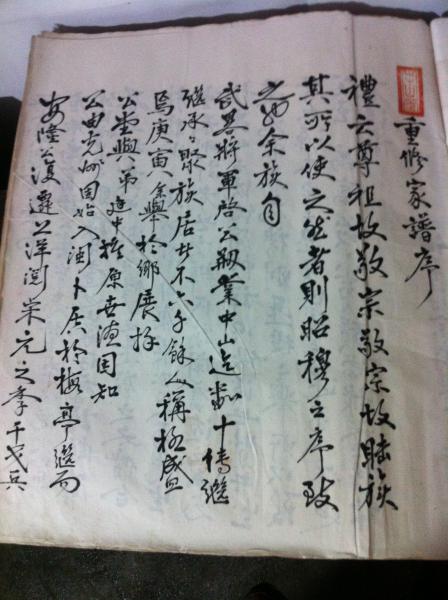 重修家譜序
禮云尊祖故敬宗敬宗故睦族
其所以使之然者則昭穆之序致
之也余族自
武畧將軍啓公剏業中山迄點十傳繼
繼承承聚族居此不下千餘人稱極盛
焉庚寅余舉於鄉展拜
公堂與弟進中推原世德因知
公由光州固始入閩卜居於梅亭繼而
安隆公復遷上洋閱宋元之季干戈兵